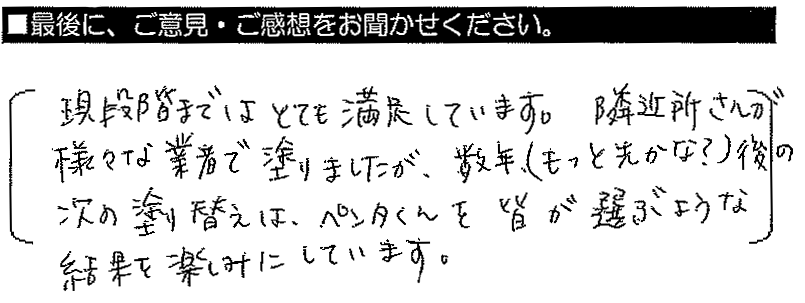 ■最後に、ご意見・ご感想をお聞かせください。
現段階まではとても満足しています。隣近所さんが
様々な業者で塗りましたが、数年(もっと先かな?)後の
次の塗り替えは、ペンタくんを皆が選ぶような
結果を楽しみにしています。